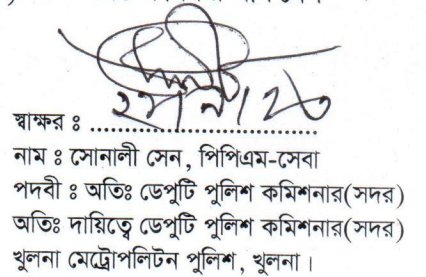 স্বাক্ষর ঃ ........................................
নাম ঃ সোনালী সেন, পিপিএম-সেবা
পদবী ঃ অতিঃ ডেপুটি পুলিশ কমিশনার(সদর)
অতিঃ দায়িত্বে ডেপুটি পুলিশ কমিশনার(সদর)
খুলনা মেট্রোপলিটন পুলিশ, খুলনা।